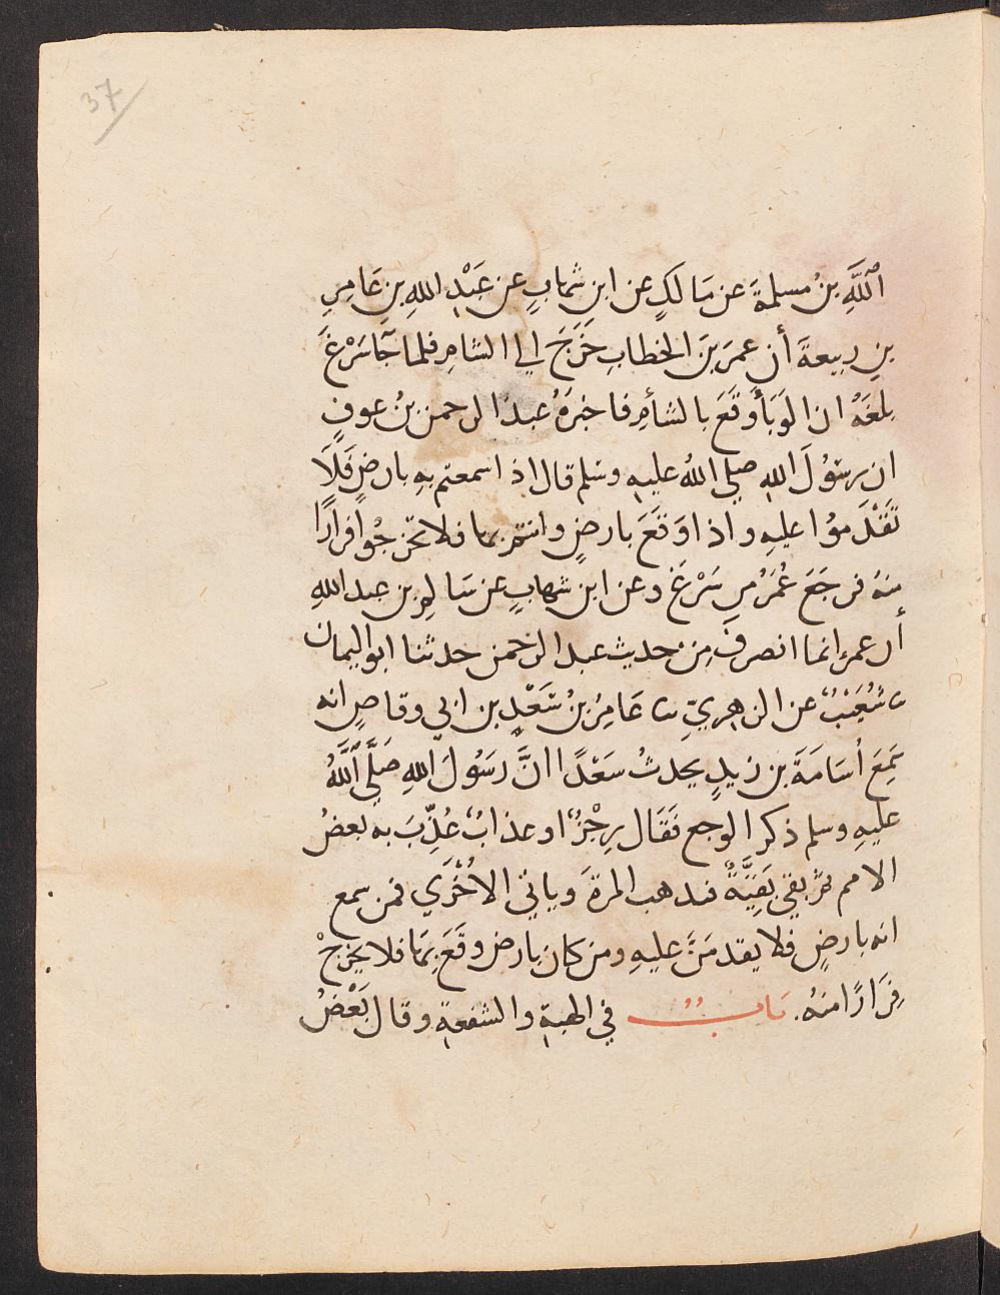 37
اللَّهِ بنُ مسلمةَ عن مَالكٍ عن ابن شهابٍ عن عَبْدِ اللهِ بنِ عَامِرِ
بنِ ربيعةَ أن عمرَ بنَ الخطابِ خَرَجَ الي الشامِ فلما جَآ سَرْغَ
بلغَهُ ان الوَبَأ وَقَعَ بالشأم فاخبرَهُ عبدُ الرحمن بنُ عوفٍ
ان رسُولَ اللهِ صلي اللهُ عليهِ وسلم قال اذا سمعتم بهِ بارضٍ فَلَا
تَقْدَموُا عليهِ واذا وَقَعَ بارضٍ وانتم بها فلا تخرجُوا فرارًا
منهُ فرجَعَ عُمَرُ من سَرْغَ وعن ابن شهابٍ عن سَالم بن عبد اللهِ
أن عمر انما انصرفَ مِن حديث عبد الرحمن حدثنا ابو اليمان
نا شُعَيْبٌ عن الزهريّ نا عَامِرُ بنُ سَعْدِ بن ابي وقاصٍ انه
سَمِعَ أُسَامَةَ بن زيدٍ يحدثُ سَعْدًا انَّ رسَُولَ اللهِ صَلَّي اللَّهُ
عليهِ وسلم ذكر الوجع فَقَال رِجْزٌ او عذابٌ عُذِّبَ به بعضُ
الامم ثم بقي بَقِيَّةٌ فيذهب المرةَ وياتي الأُخْرَي فمن سمع
انه بارضٍ فلا يقدمَنَّ عليهِ ومن كان بارض وقَعَ بهَا فلا يخرجْ
فِرَارًا منهُ. بَابٌ في الهبةِ والشفعةِ وقال بَعْضُ